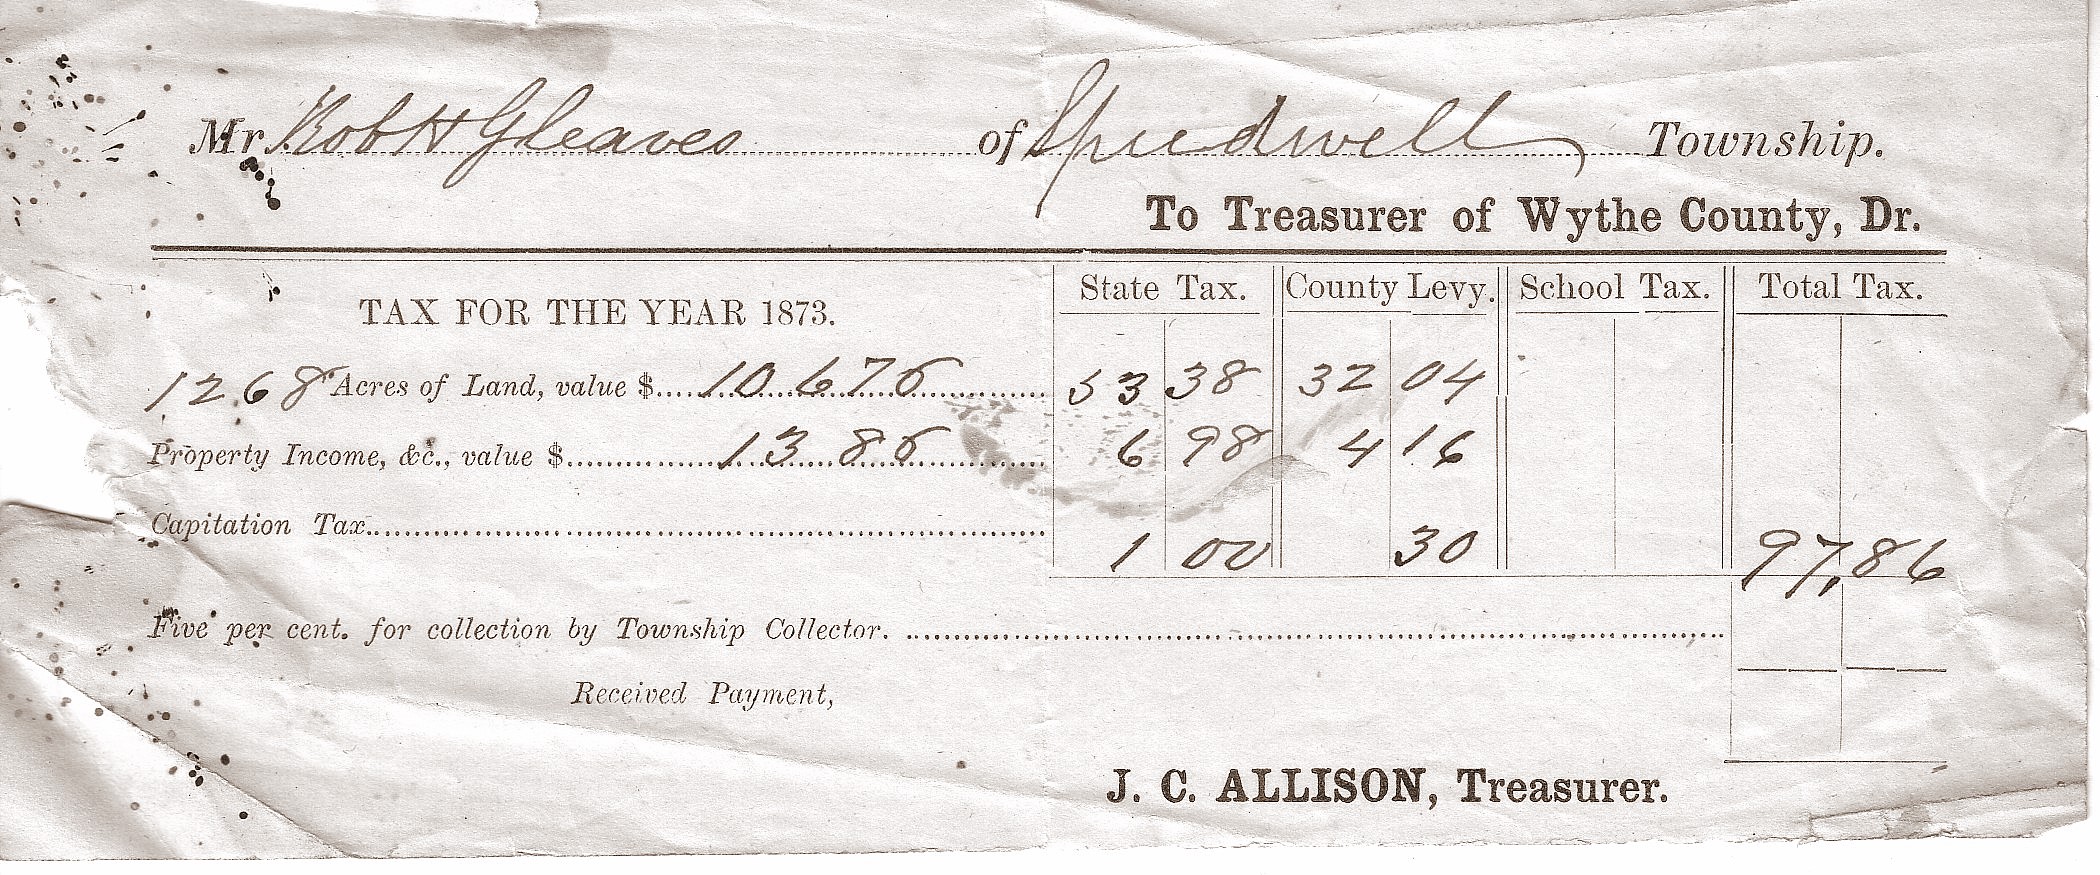 Mr. Robt H Gleaves of Speedwell Township.
To Treasurer of Wythe County, Dr.
TAX FOR THE YEAR 1873. State Tax. County Levy. School Tax. Total Tax.
1268 Acres of Land, value $ 10676 53 38 32 04
Property Income, &c., value $ 1386 6 98 4 16
Capitation Tax 1 00 30 97,86
Five per cent. for collection by Township Collector.
Received Payment,
J. C. ALLISON, Treasurer.